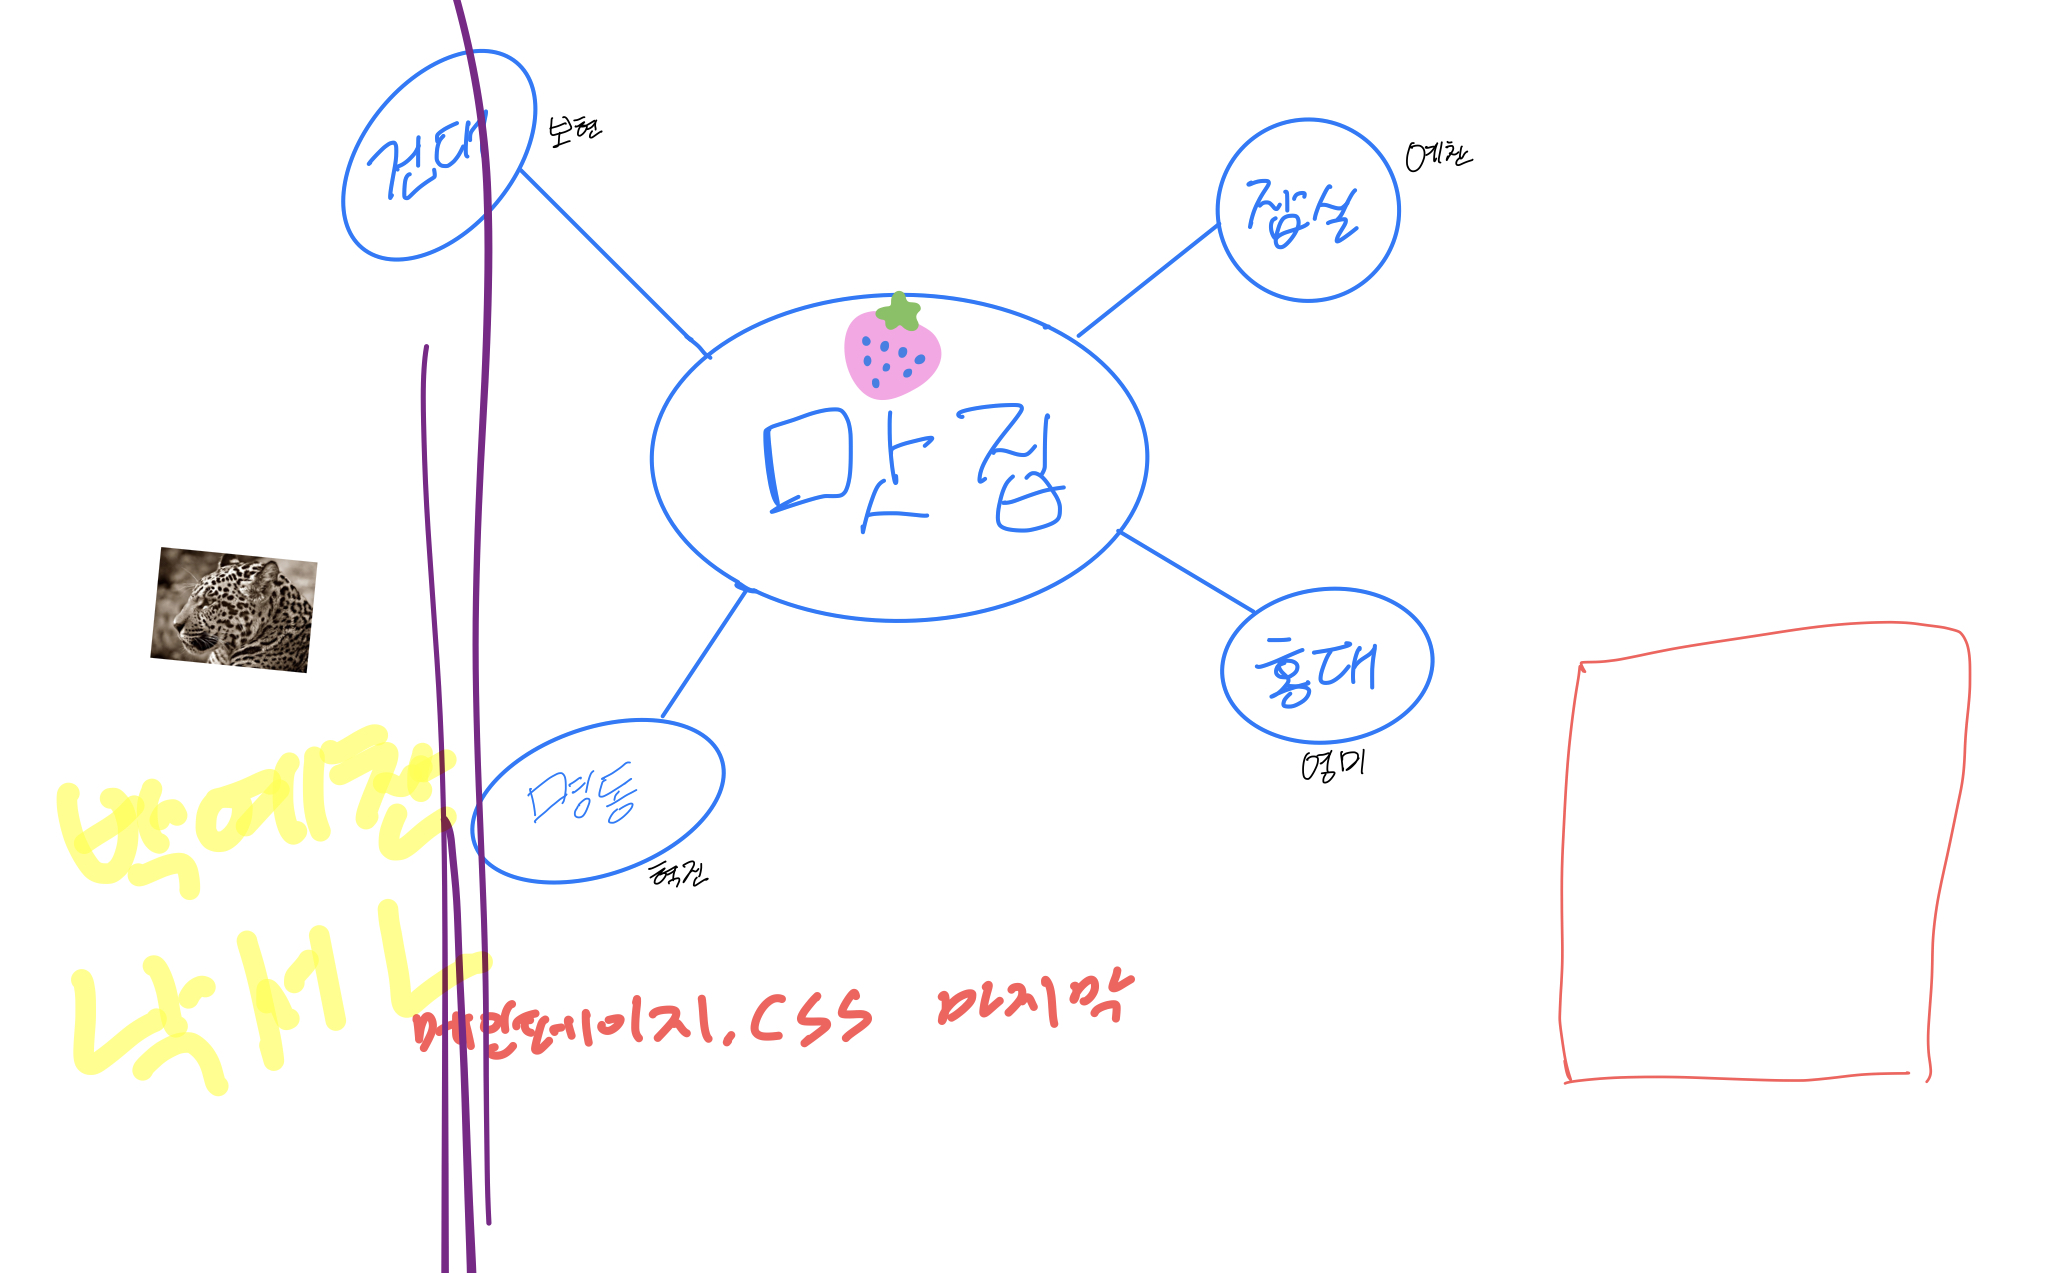 건대
보현
잠실
예찬
맛집
홍대
영미
명동
혁진
박예찬
낙서 ㄴ
메인페이지.css 마지막